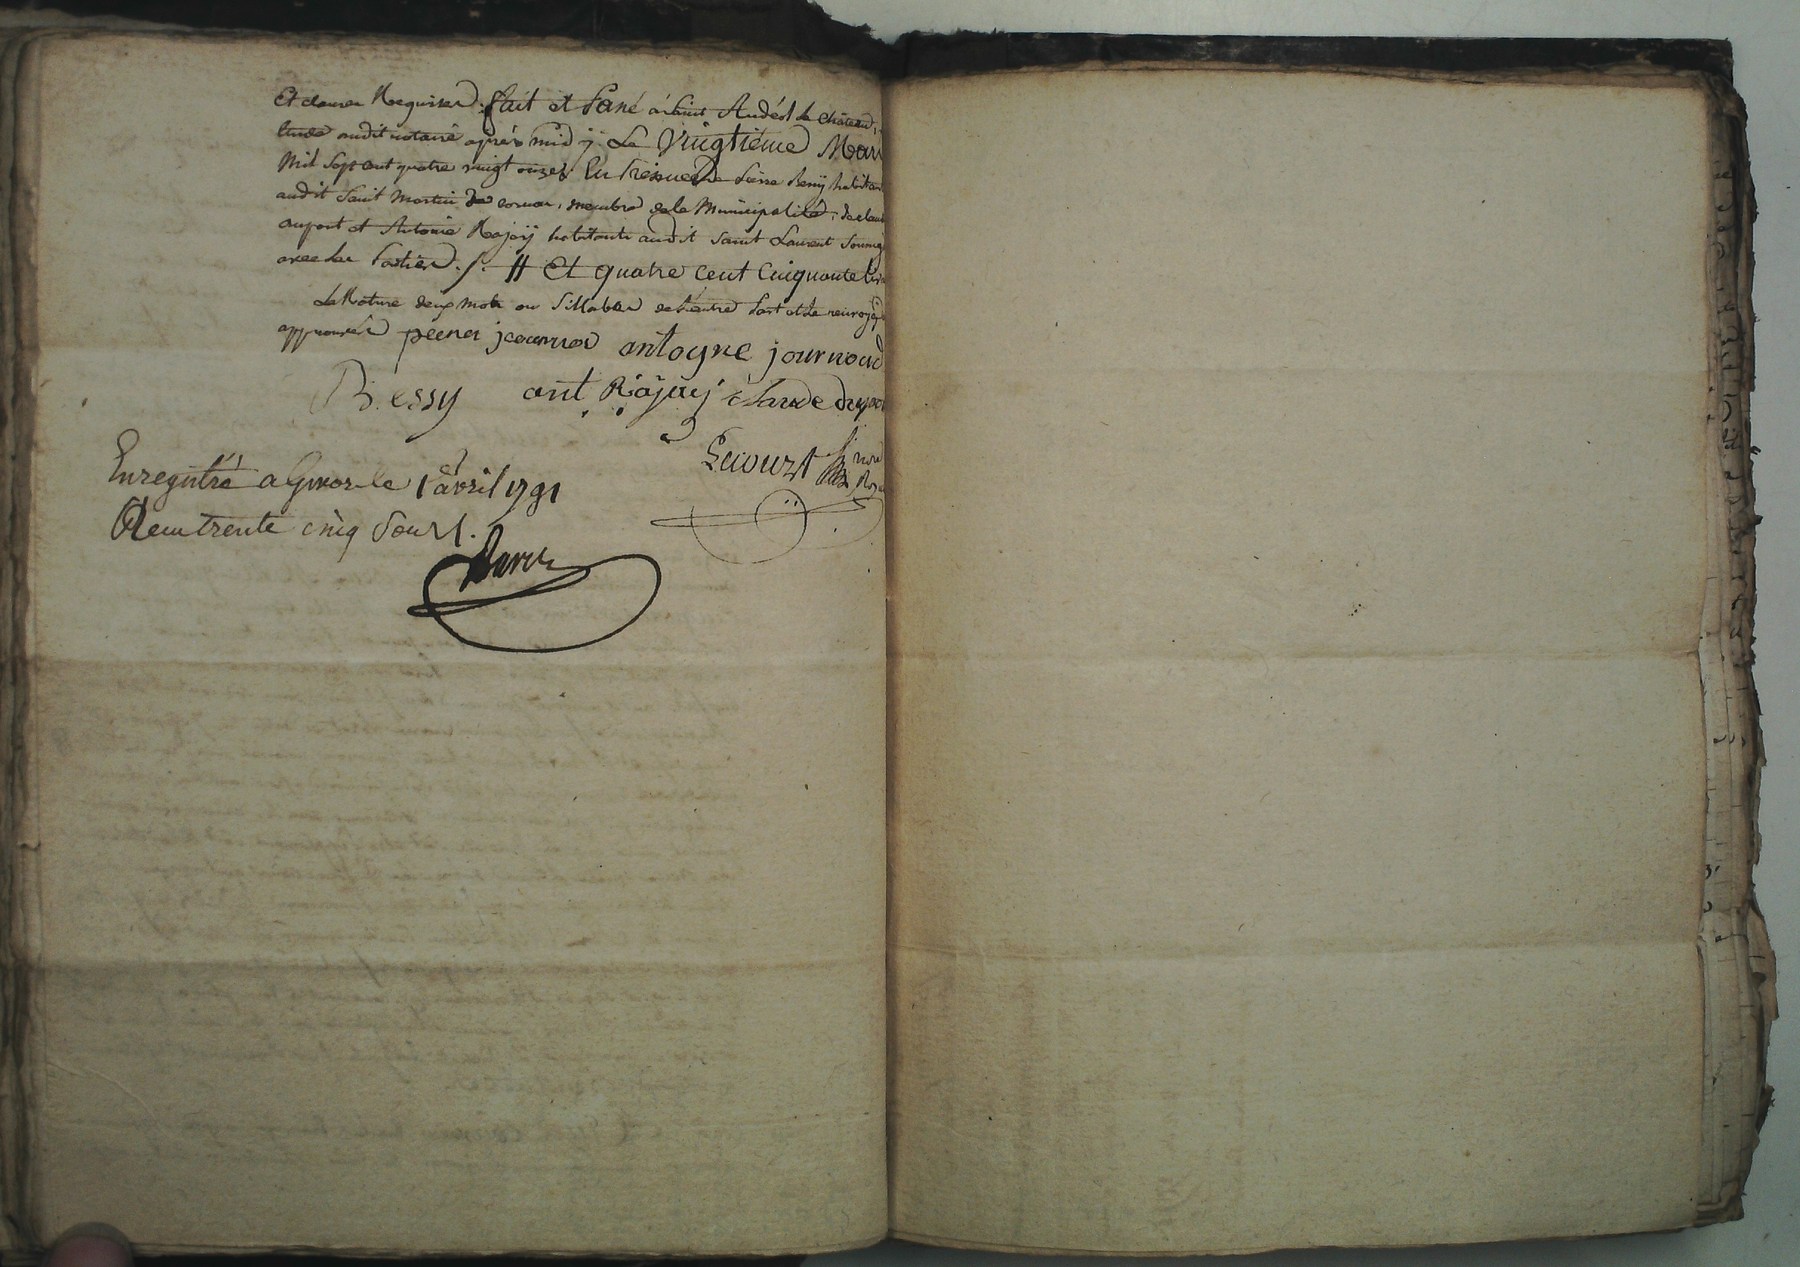 Et de ce Requises. fait et Passé à Saint Andéol le château,
Etude dudit notaire après midy. Le Vingtième Mars
Mil Sept cent quatre vingt onze. En presence de Pierre Bessy habitant
audit Saint Martin de cornas, membre de la Municipalité, de claude
dupont et Antoine Rajaÿ habitants audit Saint Laurent Soussigné
avec les Parties. /. # Et quatre cent Cinquante livres
La Rature de deux mots ou Sillabes de l'autre Part et le renvoÿ
approuvés pierre journoud antoyne journoud
Bessy ant Rajaÿ claude dupon
Lecourt nore Roya
Enregistré a Givors le 1er avril 1791
Reçu trente cinq Sous.